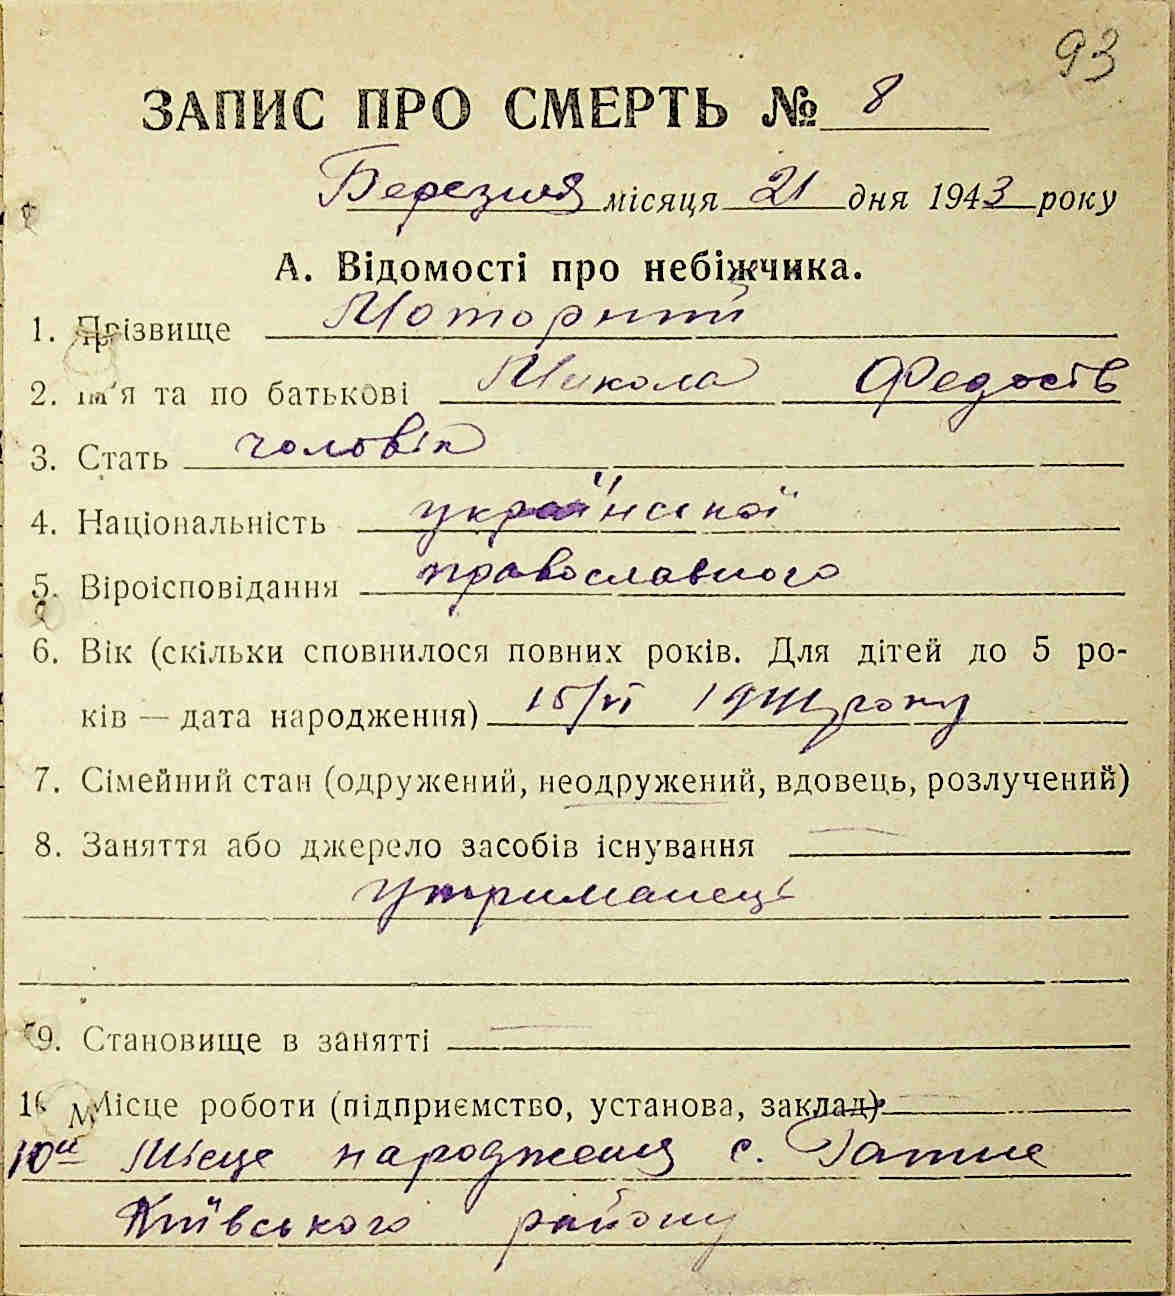 93
ЗАПИС ПРО СМЕРТЬ № 8
Березня місяця 21 дня 1943 року
А. Відомості про небіжчика.
1. Прізвище Моторний
2. Ім'я та по батькові Микола Федосів
3. Стать чоловік
4. Національність української
5. Віроісповідання православного
6. Вік (скільки сповнилося повних років. Для дітей до 5 ро-
ків — дата народження) 15/VI 1941 року
7. Сімейний стан (одружений, неодружений, вдовець, розлучений)
8. Заняття або джерело засобів існування
утриманець
9. Становище в занятті
10. Місце роботи (підприємство, установа, заклад)
10а Місце народження с. Гатне
Київського району